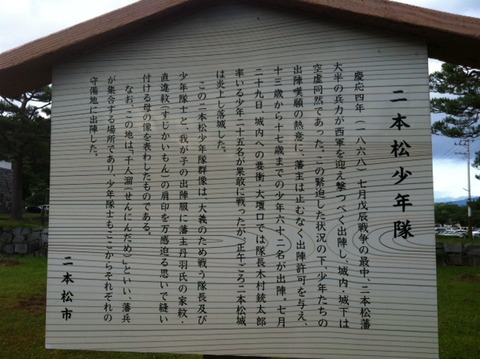 二本松少年隊
慶応四年(一八六八)七月戊辰戦争の最中、二本松藩
大半の兵力が西軍を迎え撃つべく出陣し、城内・城下は
空虚同然であった。この緊迫した状況の下、少年たちの
出陣嘆願の熱意に、藩主は止むなく出陣許可を与え、
十三歳から十七歳までの少年六十二名が出陣。七月
二十九日、城内への要衝・大壇口では隊長木村銃太郎
率いる少年二十五名が果敢に戦ったが、正午ごろ二本松城
は炎上し落城した。
この二本松少年隊群像は、大義のため戦う隊長及び
少年隊士と、我が子の出陣服に藩主丹羽氏の家紋・
直違紋(すじかいもん)の肩印を万感迫る思いで縫い
付ける母の像を表わしたものである。
なお、この地は、千人溜(せんにんだめ)といい、藩兵
が集合する場所であり、少年隊士もここからそれぞれの
守備地に出陣した。
二本松市